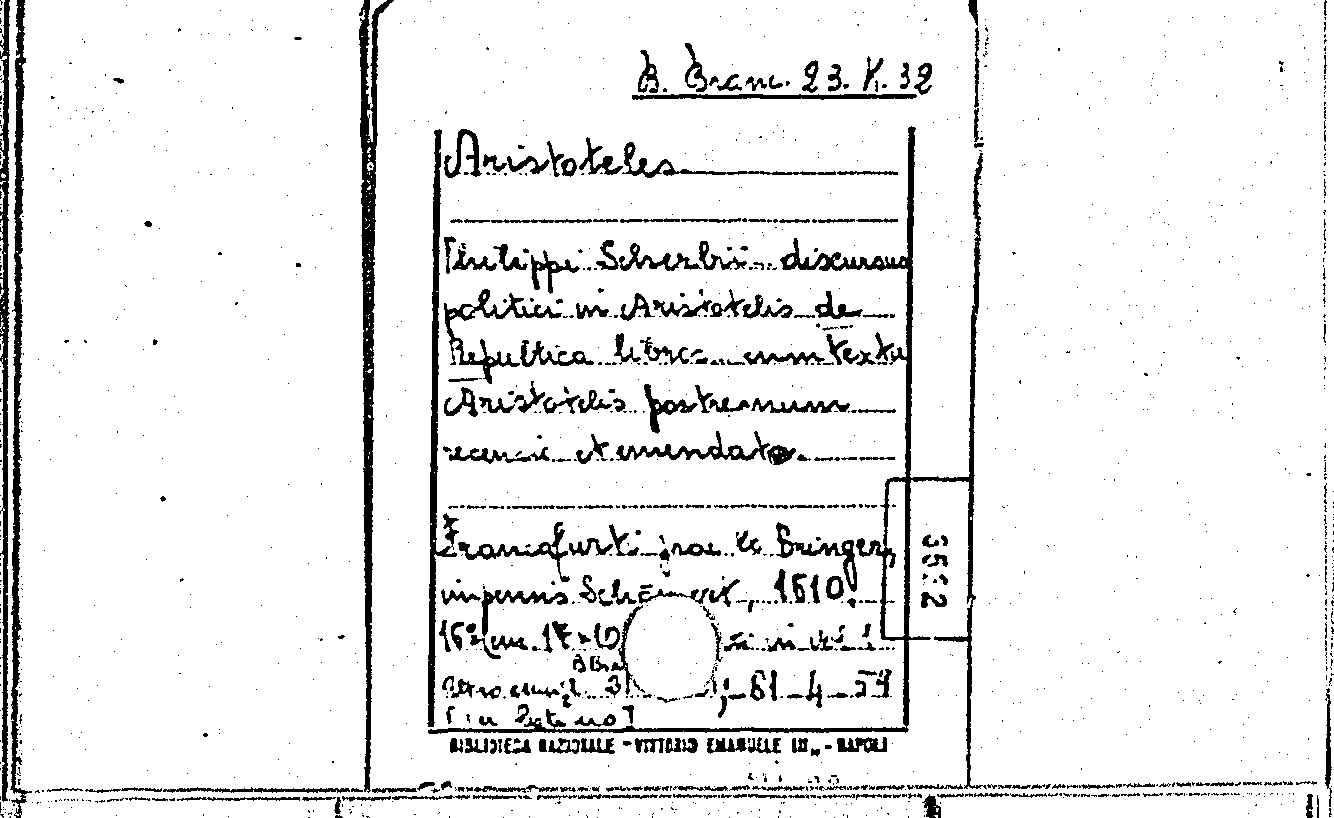 B. Branc. 23. K. 32
Aristoteles
Philippi Scherbii discursus
politici in Aristotelis de
Republica libros cum textu
Aristotelis postremum
et emendato.
Francofurti, Bringeri,
impensis 1610.
16º (cm. 17 x 10
61-4-54
[in latino]
BIBLIOTECA NAZIONALE "VITTORIO EMANUELE III" - NAPOLI